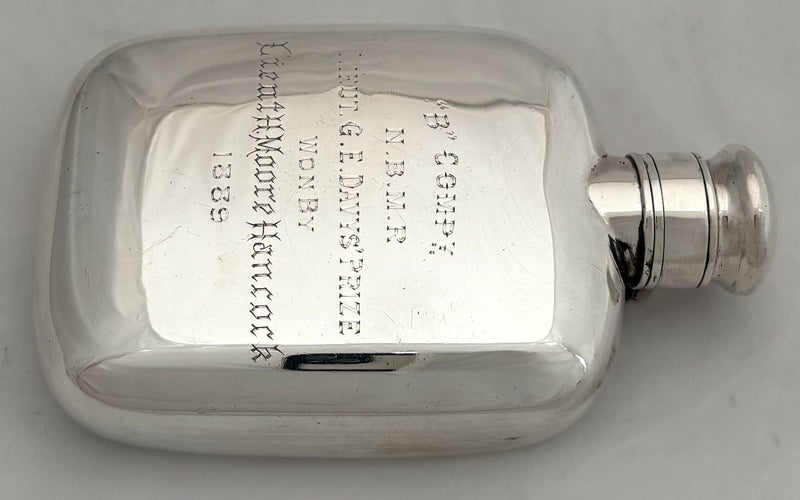 "B" COMPY.
N.B.M.R
LIEUT. G. E. DAVYS' PRIZE
WON BY
Lieut H Moore Hancock
1889